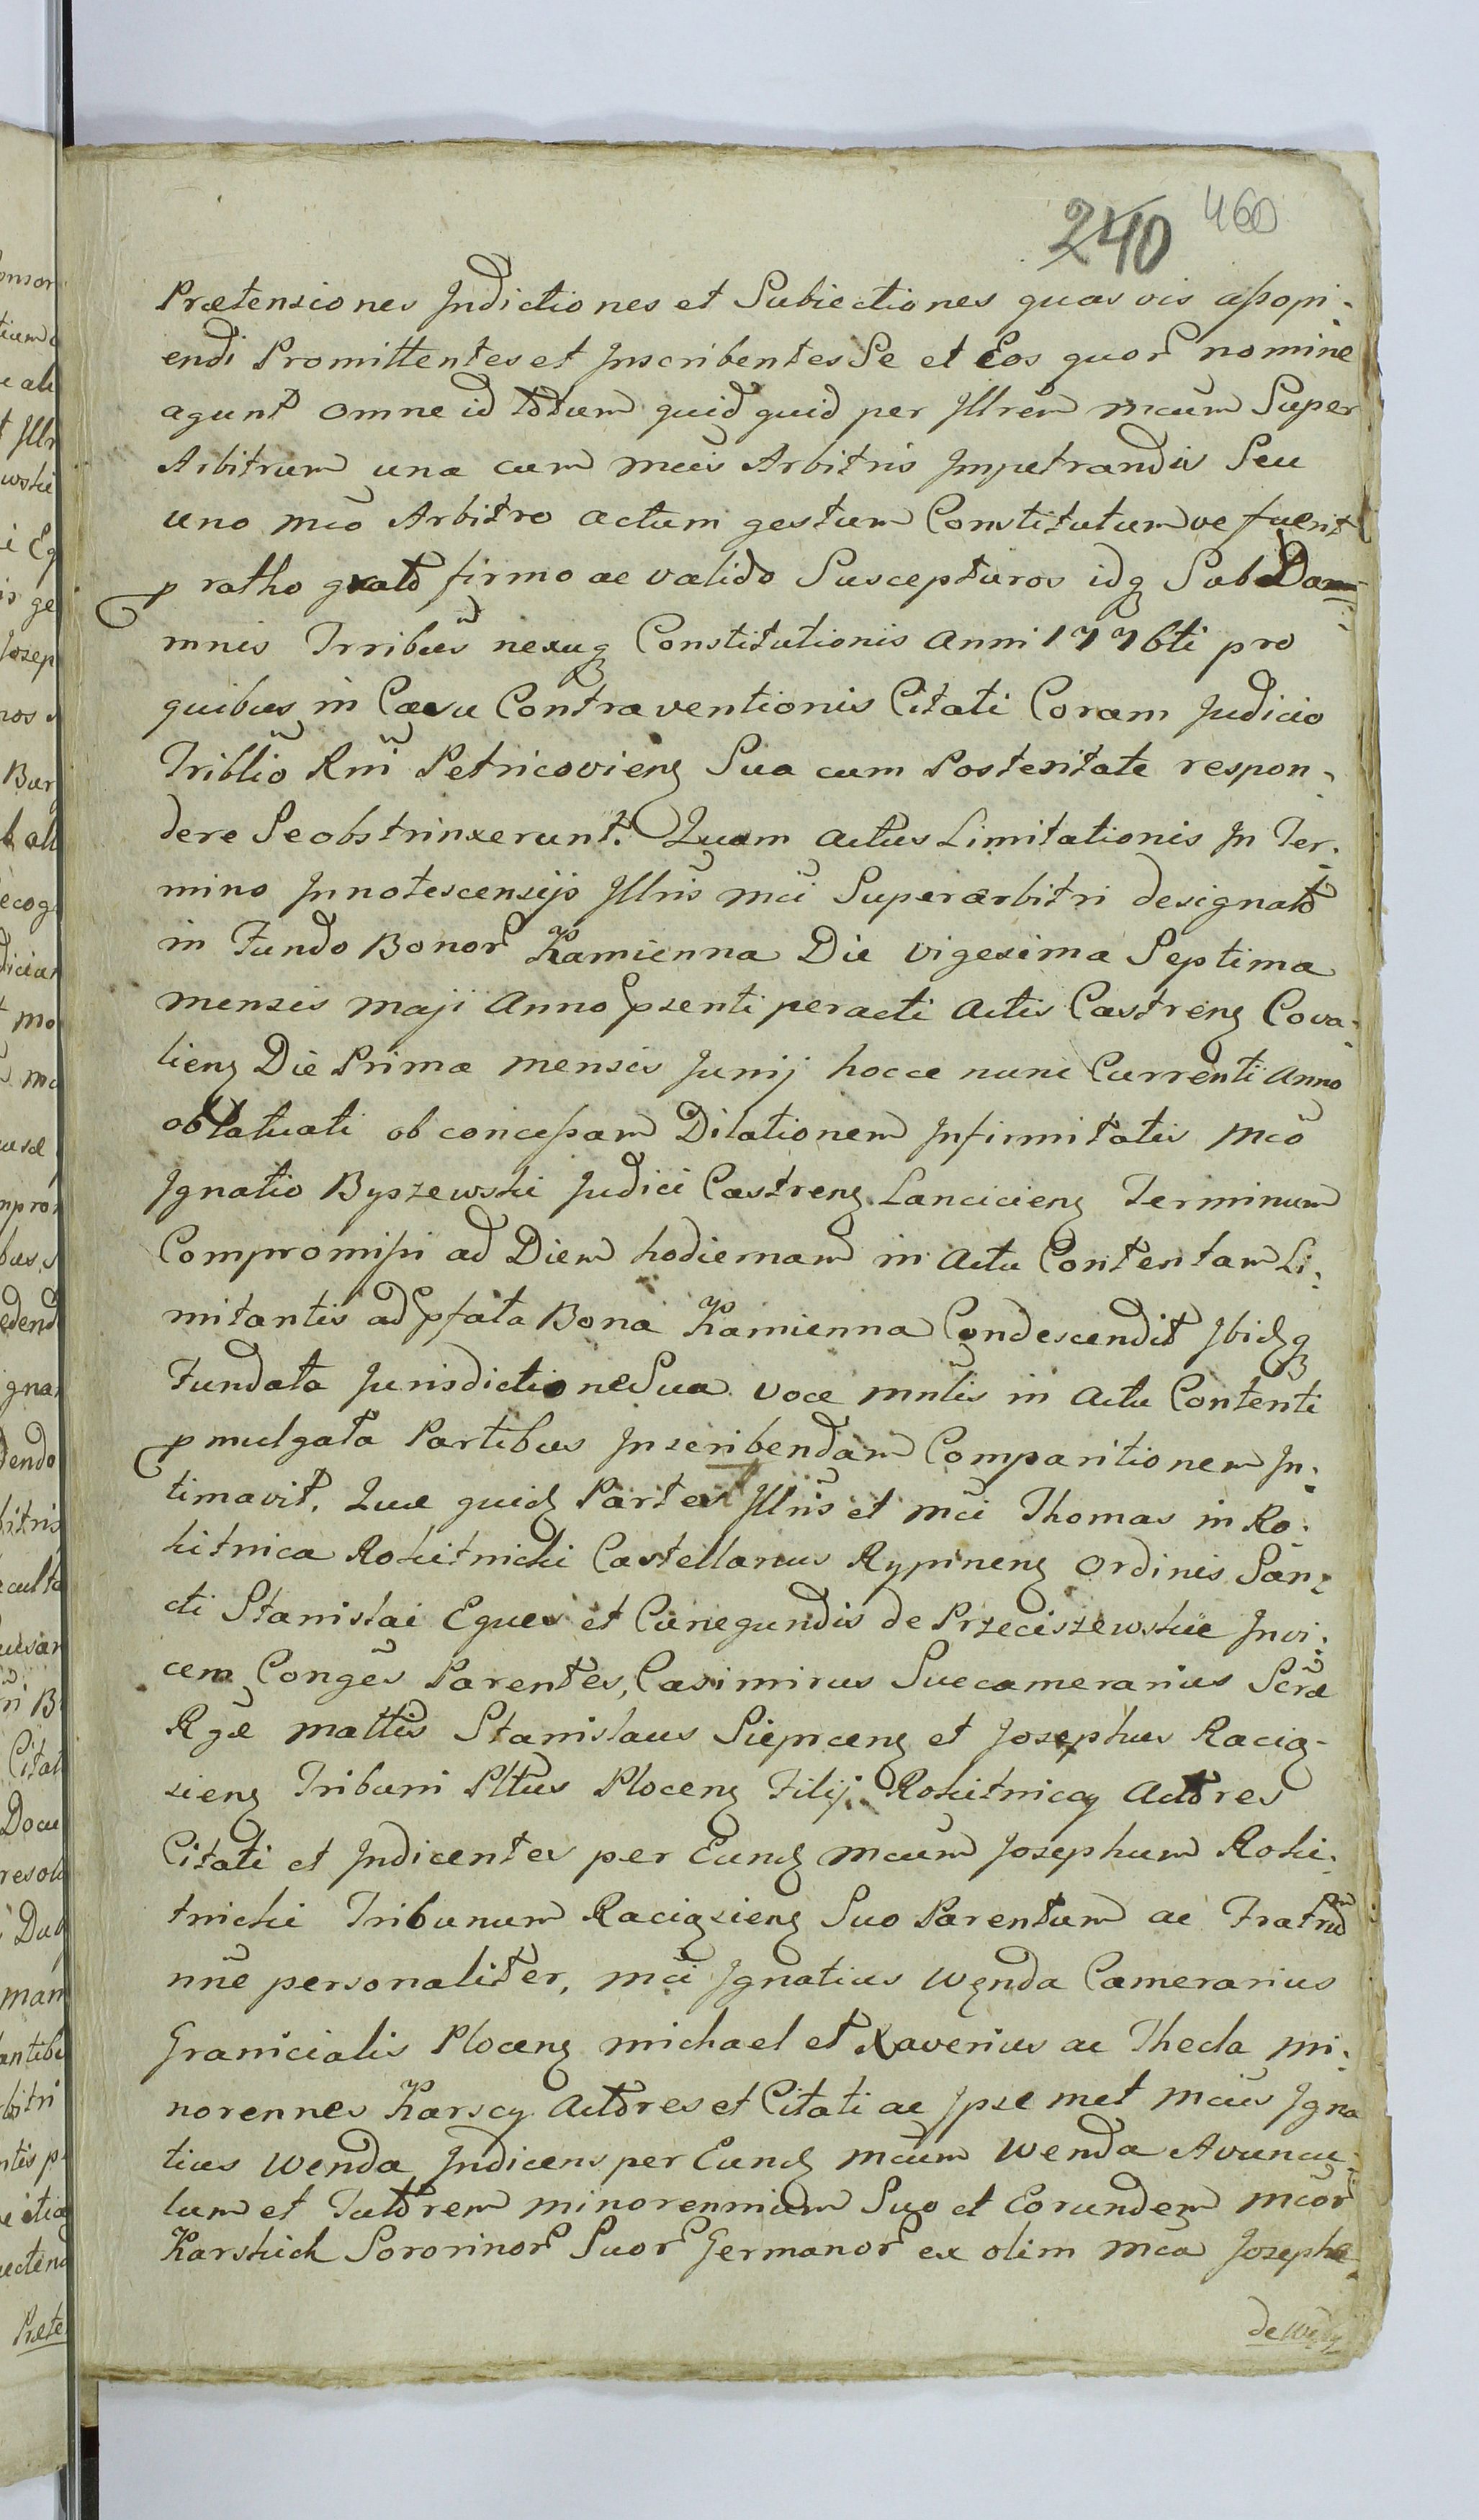 240 460
Prætensiones Indictiones et Subiectiones quas vis assopi-
endi Promittentes et Inscribentes Se et Eos quor nomine
agunt omne id totum quid quid per Illrem mcum Super
Arbitrum una cum mcis Arbitris Impetrandis Seu
uno mco Arbitro actum gestum Constitutum ve fuerit
p ratho grato firmo ac valido Suscepturos idq Sub Dam-
mnis Irribus nexuq Constitutionis anni 1776ti pro
quibus in Casu Contraventionis Citati Coram Judicio
Triblio Rni Petricovieng Sua cum Posteritate respon-
dere Se obstrinxerunt. Quam actus Limitationis In Ter-
mino Innotescensijs Illris mci Superarbitri designato
in Fundo Bonor Kamienna Die vigesima Septima
mensis maji Anno psenti peracti actis Castreng Cova-
lieng Die Prima mensis Junij hocce nunc Currenti anno
oblatuati ob concessam Dilationem Infirmitatis mco
Ignatio Byszewski Judici Castreng Lancicieng Terminum
Compromissi ad Diem hodiernam in actu Contentam Li-
mitantis ad pfata Bona Kamienna Condescendit Ibidq
Fundata Jurisdictione Sua voce mnlis in actu Contenti
pmulgata Partibus Inscribendam Comparitionem In-
timavit. Quæ quid Partes Illris et mci Thomas in Ro-
kitnica Rokitnicki Castellanus Rypineng ordinis San-
cti Stanislai Eques et Cunegundis de Przeciszewskie Invi-
cem Conges Parentes, Casimirus Succamerarius Scræ
Rgæ mattis Stanislaus Sieprceng et Josephus Racig-
zieng Tribuni Pltus Ploceng Filij Rokitniccy Actores
Citati et Indicentes per Eund mcum Josephum Roki-
tnicki Tribunum Racigzieng Suo Parentum ac Fratrum
nne personaliter, mci Ignatius Wenda Camerarius
Granicialis Ploceng michael et Xaverius ac Thecla mi-
norennes Karscy Actores et Citati ac Ipse met mcus Igna
tius Wenda Indicens per Eund mcum Wenda Avuncu-
lum et Tutorem minorennium Suo et Eorundem mcor
Karskich Sororinor Suor Germanor ex olim mca Josepha